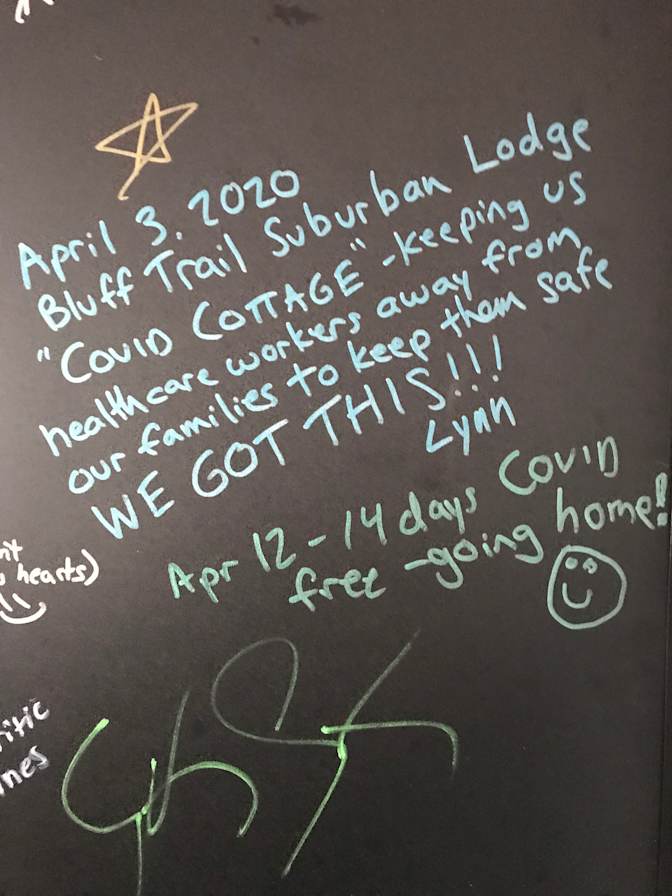 April 3. 2020
Bluff Trail Suburban Lodge
"COVID COTTAGE" - keeping us
healthcare workers away from
our families to keep them safe
WE GOT THIS!!!
Lynn
Apr 12 - 14 days COVID
free - going home!
hearts)